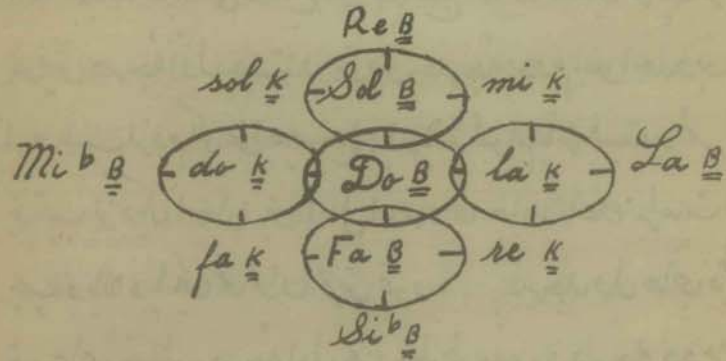 Re B
sol K Sol B mi K
Mi b B do K Do B la K La B
fa K Fa B re K
Si b B